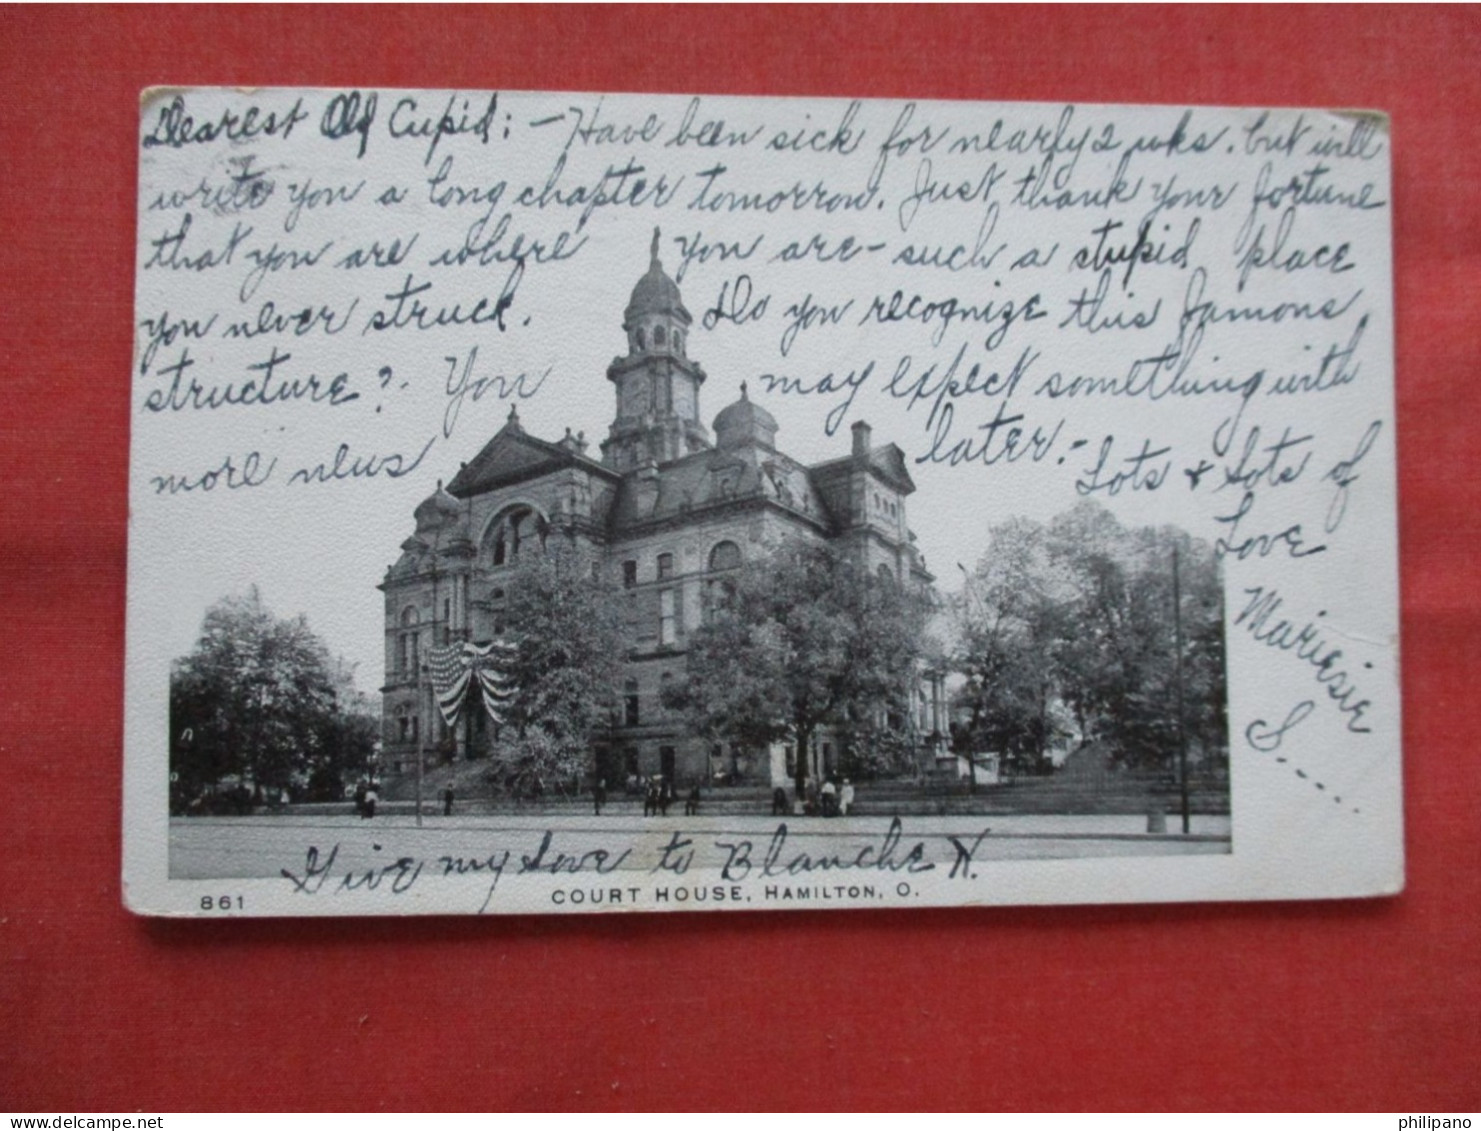 Dearest Old Cupid: - Have been sick for nearly 2 wks. but will
write you a long chapter tomorrow. Just thank your fortune
that you are where you are - such a stupid place
you never struck. Do you recognize this famous
structure? You may expect something with
more news later. -
Lots & Lots of
Love
Mariesie
S....
Give my love to Blanche H.
861
COURT HOUSE, HAMILTON, O.
philipano